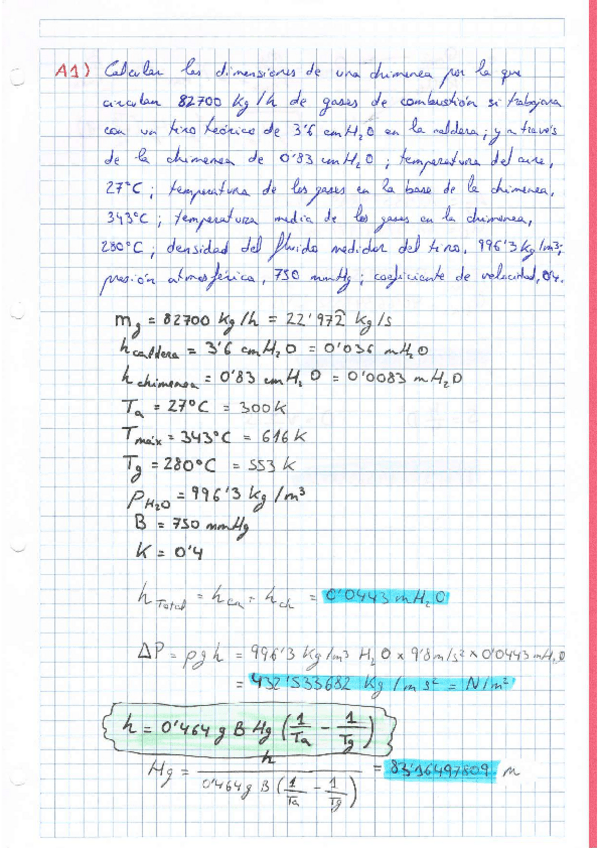 A1) Calcular las dimensiones de una chimenea por la que
circulan 82700 Kg/h de gases de combustión si trabajara
con un tiro teórico de 3'6 cm H₂O en la caldera; y a través
de la chimenea de 0'83 cm H₂O; temperatura del aire,
27°C; temperatura de los gases en la base de la chimenea,
343°C; temperatura media de los gases en la chimenea,
280°C; densidad del fluido medidor del tiro, 996'3 Kg/m³;
presión atmosférica, 750 mmHg; coeficiente de velocidad, 0'4.
mg = 82700 Kg/h = 22'972̂ Kg/s
h caldera = 3'6 cm H₂O = 0'036 m H₂O
h chimenea = 0'83 cm H₂O = 0'0083 m H₂O
Ta = 27°C = 300 K
Tmáx = 343°C = 616 K
Tg = 280°C = 553 K
ρH₂O = 996'3 Kg/m³
B = 750 mmHg
K = 0'4
h Total = h ca - h ch = 0'0443 m H₂O
ΔP = ρgh = 996'3 Kg/m³ H₂O × 9'8 m/s² × 0'0443 m H₂O
= 432'533682 Kg/m s² = N/m²
h = 0'464 g B Hg (1/Ta - 1/Tg)
Hg = h / 0'464 g B (1/Ta - 1/Tg) = 83'16497809 m